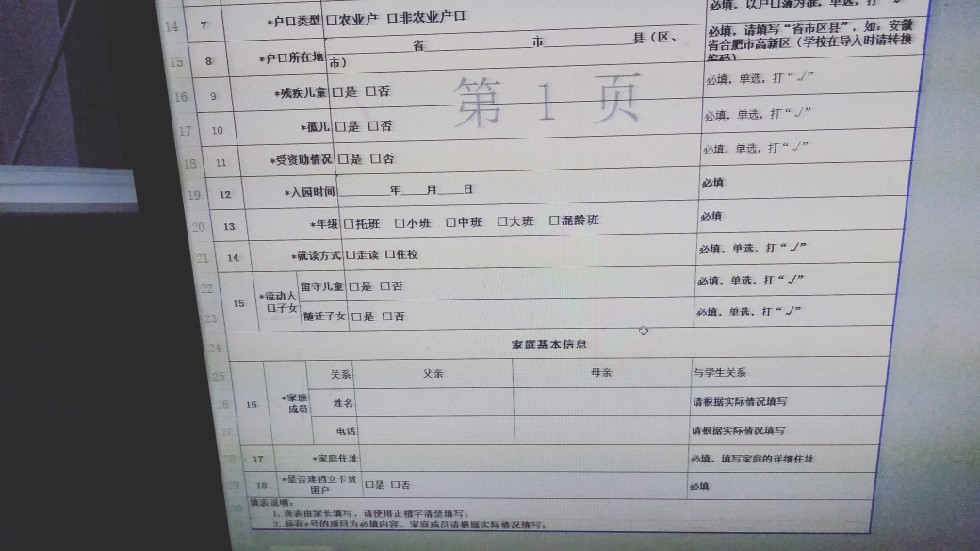 14 7 *户口类型 □农业户 □非农业户口 必填，以户口簿为准，单选，打“√”
15 8 *户口所在地 ____省____市____县（区、市） 必填，请填写“省市区县”，如：安徽
省合肥市高新区（学校在导入时请转换
编码）
16 9 *残疾儿童 □是 □否 必填，单选，打“√”
第 1 页
17 10 *孤儿 □是 □否 必填，单选，打“√”
18 11 *受资助情况 □是 □否 必填，单选，打“√”
19 12 *入园时间 ____年____月____日 必填
20 13 *年级 □托班 □小班 □中班 □大班 □混龄班 必填
21 14 *就读方式 □走读 □住校 必填、单选、打“√”
22 15 *流动人口子女 留守儿童 □是 □否 必填、单选、打“√”
23 随迁子女 □是 □否 必填、单选、打“√”
24 家庭基本信息
25 关系 父亲 母亲 与学生关系
26 16 *家庭成员 姓名 请根据实际情况填写
27 电话 请根据实际情况填写
28 17 *家庭住址 必填、填写家庭的详细住址
29 18 *是否建档立卡贫困户 □是 □否 必填
填表说明：
1、此表由家长填写，请使用正楷字清楚填写；
2、标有*号的项目为必填内容、家庭成员请根据实际情况填写；